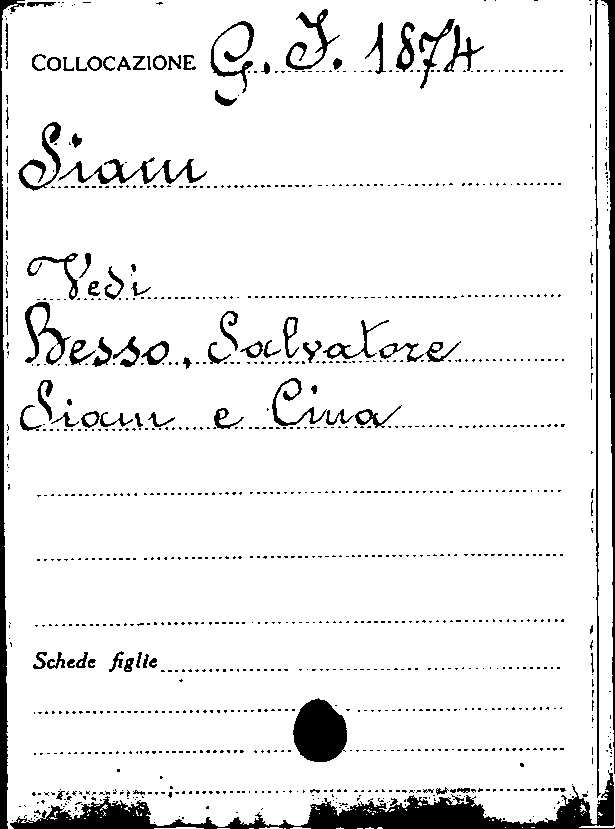 COLLOCAZIONE G. I. 1874
Siam
Vedi
Besso, Salvatore
Siam e Cina
Schede figlie